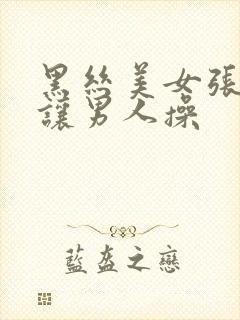 黑丝美女張
讓男人操
藍盔之戀